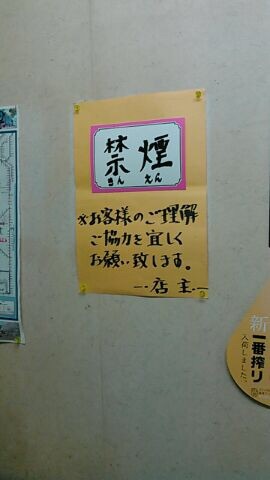 禁煙
きんえん
※お客様のご理解
ご協力を宜しく
お願い致します。
―店主―
新
一番搾り
入荷しました。